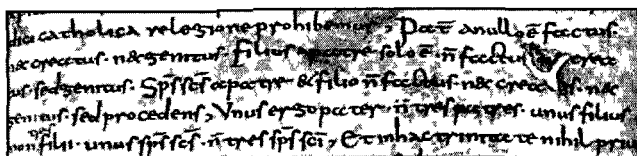 dici catholica relegione prohibemur, Pat̄ a nullo ē factus.
nec creatus. nec genitus. Filius a patre solo ē. n̄ factus crea
tus. sed genitus. Sp̄s sc̄s a patre & filio n̄ factus. nec creatus. nec
genitus. sed procedens, Unus ergo pater. n̄ tres patres. unus filius
non filii. unus sp̄s sc̄s. n̄ tres sp̄s sc̄i, Et in hac trinitate nihil priu